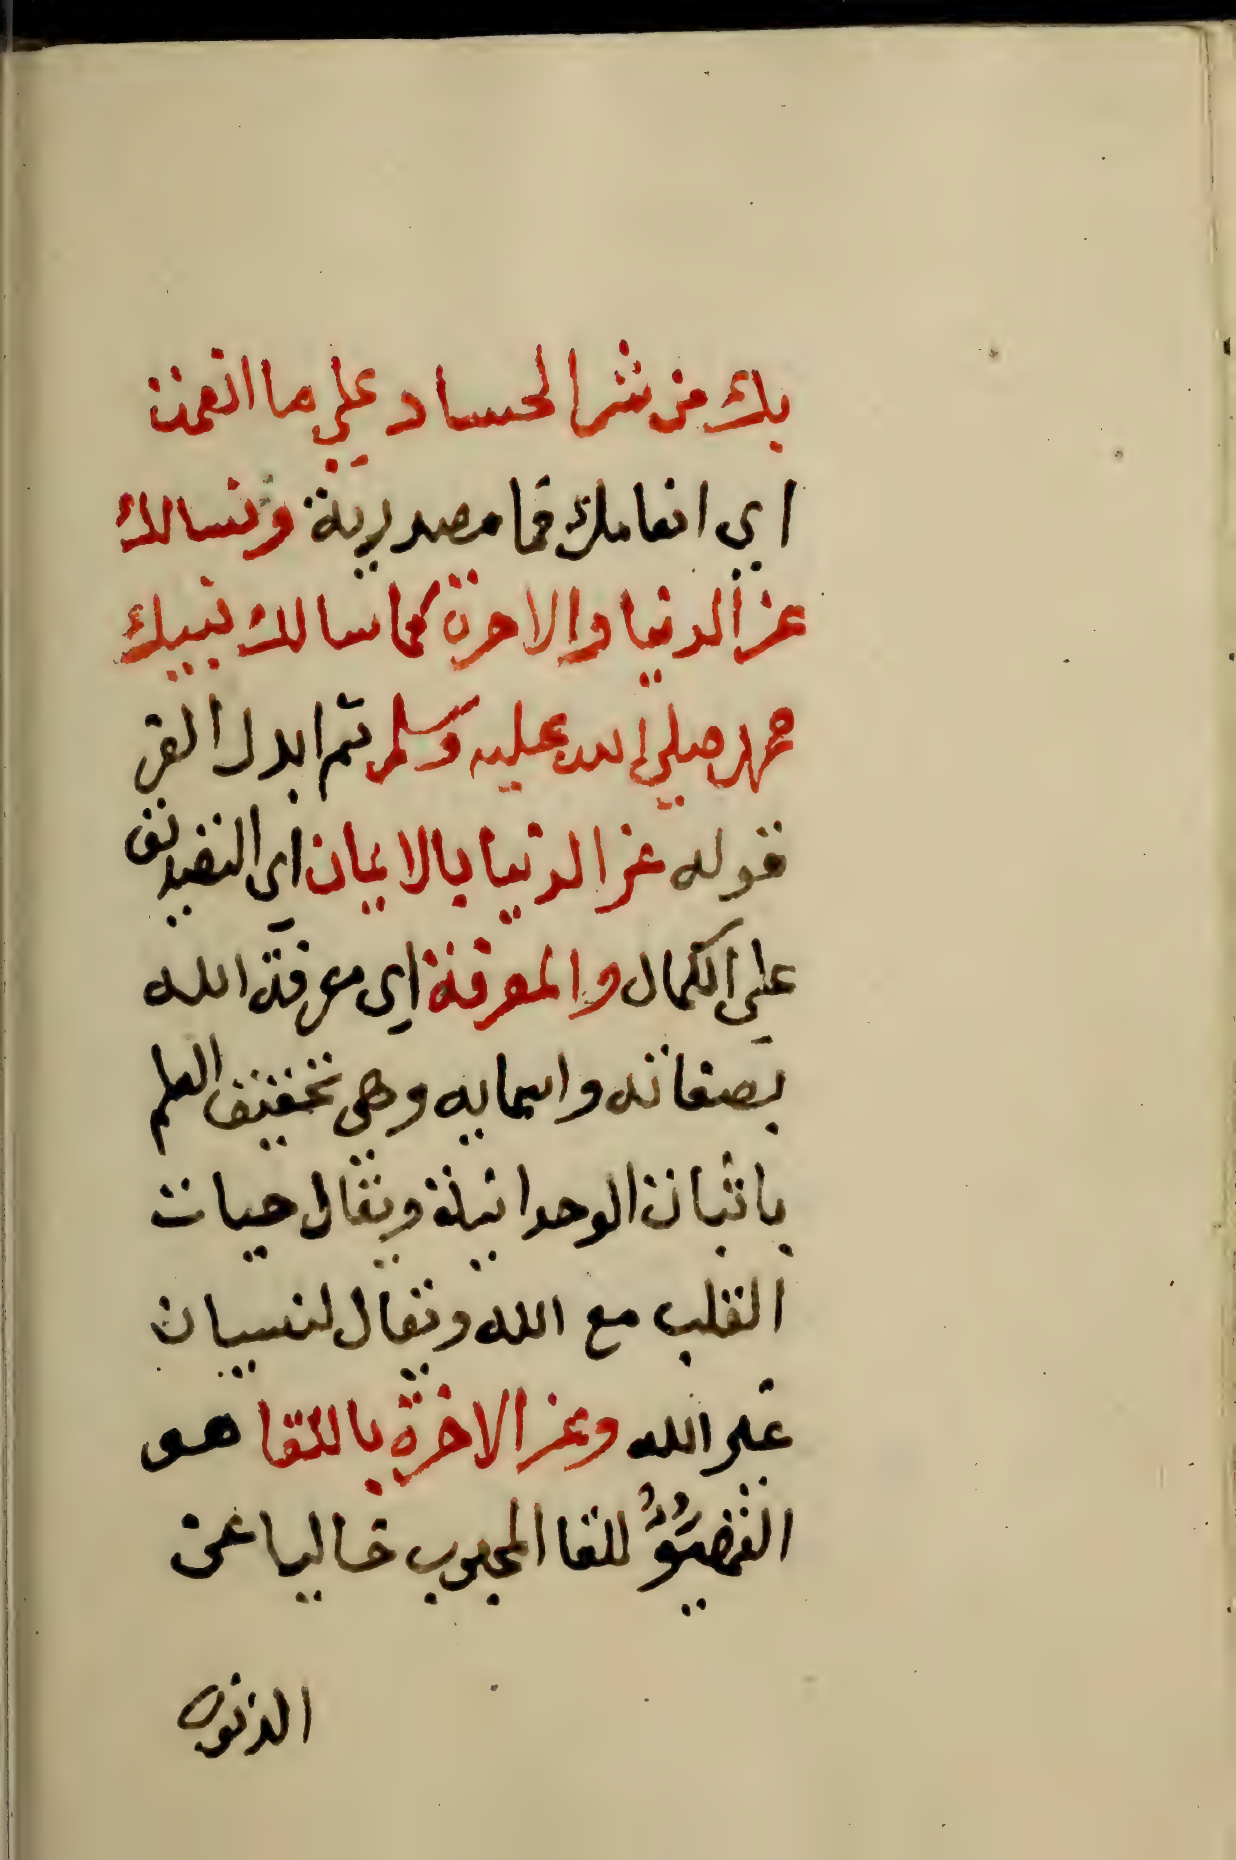 بك من شر الحساد علي ما انعمت
اي انعامك فما مصدرية ونسالك
عز الدنيا والاخرة كما سالك نبيك
محمد صلي الله عليه وسلم ثم ابدل
قوله عز الدنيا بالايمان اي التصديق
علي الكمال والمعرفة اي معرفة الله
بصفاته واسمايه وهي تحقيق العلم
باثبات الوحدانية ويقال حيات
القلب مع الله ويقال لنسيان
غير الله وعز الاخرة باللقا هو
للقا المحبوب خاليا عن
الذنوب